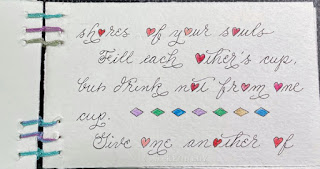 shores of your souls
Fill each other's cup,
but drink not from one
cup.
Give one another of